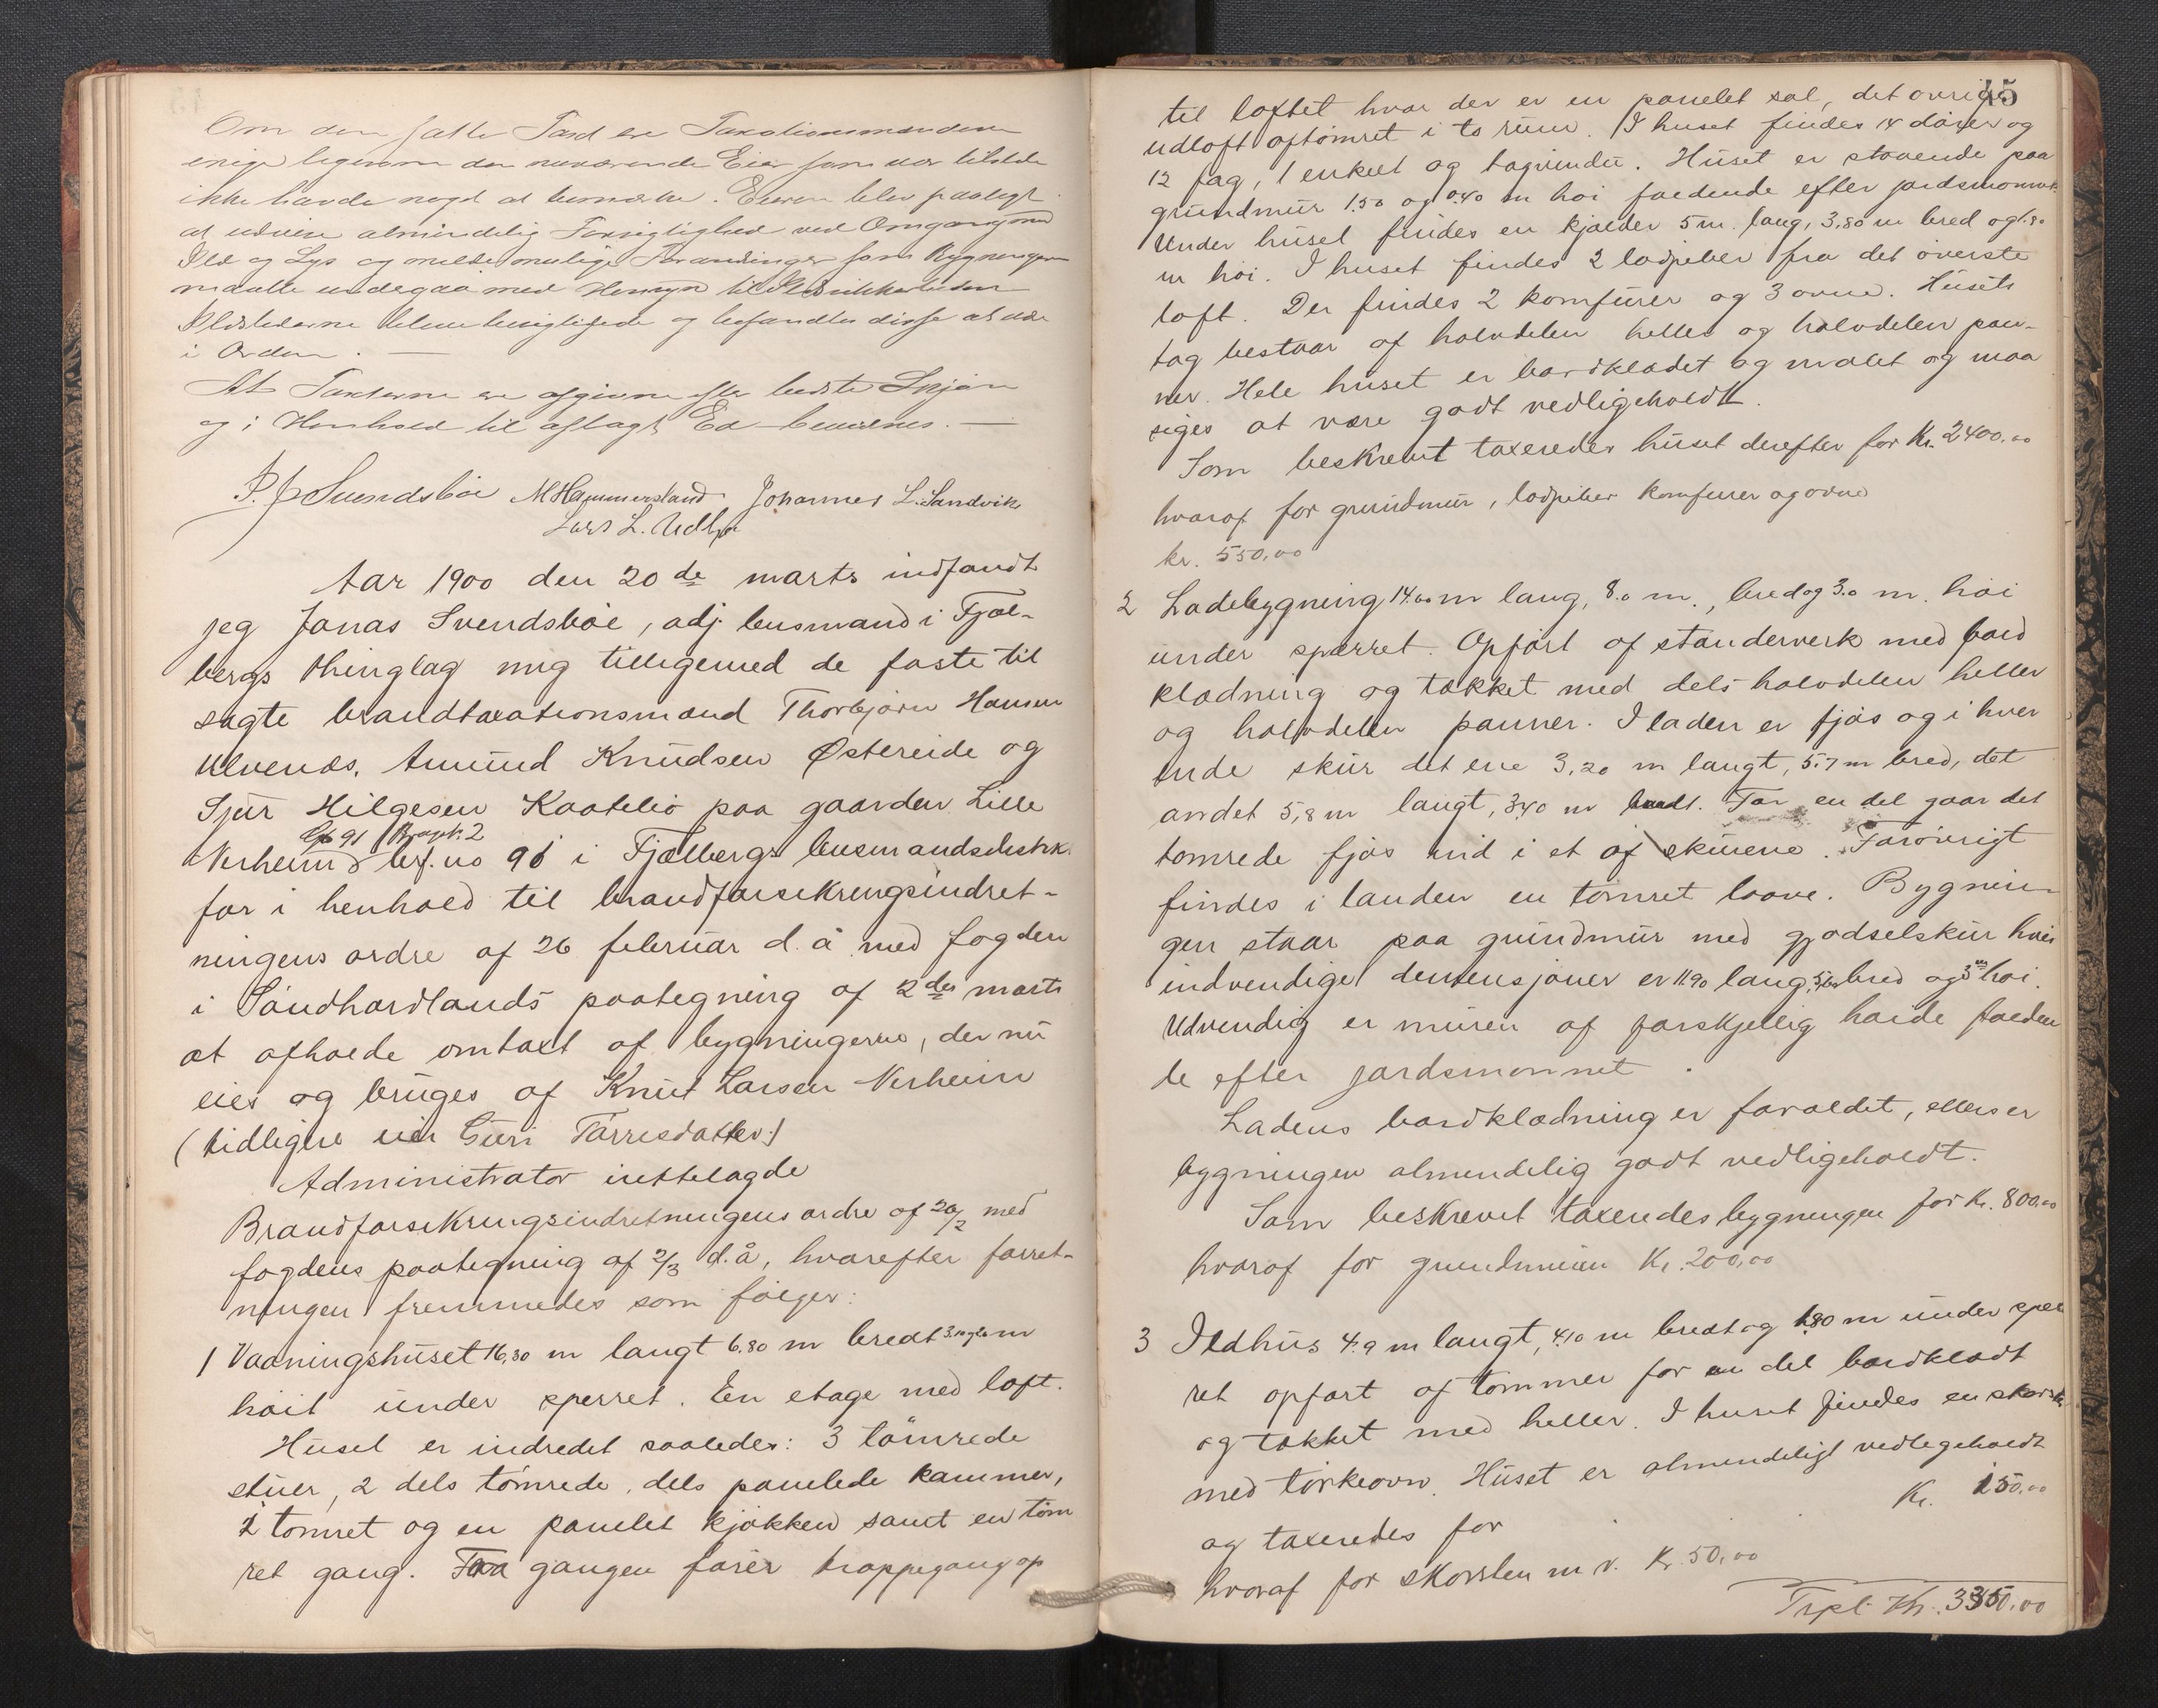 Om den satte Taxt ere Taxationsmændene
enige ligesom den nuværende Eier som var tilstede
ikke havde noget at bemærke. Eieren blev paalagt
at udvise almindelig Forsigtighed ved Omgang med
Ild og Lys og melde mulige Forandringer som Bygningerne
maatte undergaa med Hensyn til Ildsikkerheden
Ildstederne bleve besigtigede og befandtes disse at være
i Orden. —
At Taxterne ere afgivne efter bedste Skjøn
og i Henhold til aflagt Ed bevidnes. —
P. J. Svendsbøe M Hammersland Johannes L. Sandvik
Lars L. Udbø
Aar 1900 den 20de marts indfandt
jeg Jonas Svendsbøe, adj. lensmand i Fjel-
bergs thinglag mig tilligemed de faste til
sagte brandtaxationsmænd Thorbjørn Hansen
Ulvenæs, Amund Knudsen Østereide og
Sjur Hilgesen Kaatelid paa gaarden Lille
Gb 91 Brugsn. 2
Nerheim lbf. no 91 i Fjelbergs lensmandsdistrik.
for i henhold til brandforsikringsindret-
ningens ordre af 26 februar d. å med fogden
i Søndhordlands paategning af 2den marts
at afholde omtaxt af bygningerne, der nu
eies og bruges af Knut Larsen Nerheim
(tidligere eier Guri Tørresdatter)
Administrator inttelagde
Brandforsikringsindretningens ordre af 26/2 med
fogdens paategning af 2/3 d.å, hvorefter forret-
ningen fremmedes som følger:
1 Vaaningshuset 16,30 m langt 6.80 m bredt m
høit under sperret. En etage med loft.
Huset er indredet saaledes: 3 tømrede
stuer, 2 dels tømrede, dels panelede kammer,
1 tømret og en panelet kjøkken samt en tøm
ret gang. Fra gangen fører trappegang op
45
til loftet hvor der er en panelet sal, det øvrige
udloft optømret i to rum. I huset findes 14 dører og
12 fag, 1 enkelt og tagvindu. Huset er staaende paa
grundmur 1.50 og 0.40 m høi faldende efter jordsmonnet.
Under huset findes en kjælder 5 m. lang, 3,80 m bred og 1.80
m høi. I huset findes 2 lodpiber fra det øverste
loft. Der findes 2 komfurer og 3 ovne. Husets
tag bestaar af halvdelen heller og halvdelen pan-
ner. Hele huset er bordklædet og malet og maa
siges at være godt vedligeholdt.
Som beskrevet taxeredes huset derefter for Kr. 2400,00
hvoraf for grundmur, lodpiber komfurer og ovne
kr. 550,00
2 Ladebygning 14.00 m lang, 8.0 m., bred og 3.0 m. høi
under sperret. Opført af standerverk med bord
klædning og tækket med dels halvdelen heller
og halvdelen panner. I laden er fjøs og i hver
ende skur det ene 3,20 m langt, 5.7 m bred, det
andet 5,8 m langt, 3,40 m bredt. For en del gaar det
tømrede fjøs ind i et af skurene. Forøvrigt
findes i landen en tømret loove. Bygnin-
gen staar paa grundmur med gjødselskur hvis
indvendige demensjoner er 11.90 lang, bred og 3 m høi.
Udvendig er muren af forskjellig høide falden
de efter jordsmonnet.
Ladens bordklædning er forældet, ellers er
bygningen almendelig godt vedligeholdt.
Som beskrevet taxeredes bygningen for Kr. 800,00
hvoraf for grundmuren Kr. 200,00
3 Ildhus 4.9 m langt, 4,10 m bredt og 1.80 m under sper
ret opført af tømmer for en del bordklædt
og tækket med heller. I huset findes en skorsten
med tørkeovn. Huset er almendeligt vedligeholdt
og taxeredes for Kr. 150,00
hvoraf for skorsten m v. Kr. 50,00
Trpl. Kr. 3350.00